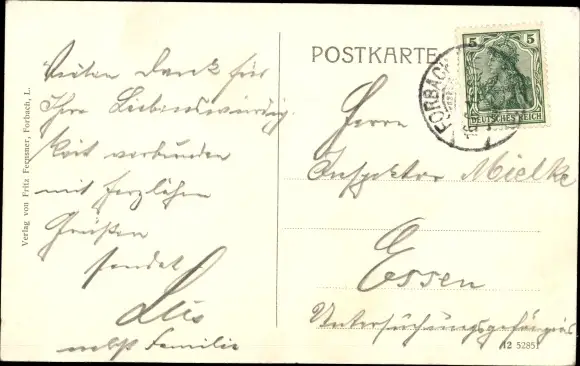 Vielen Dank für
Ihre Liebenswürdig
keit verbunden
mit herzlichen
Grüßen
sendet
nebst Familie
Verlag von Fritz Fegusner, Forbach, L.
POSTKARTE
FORBACH
5 5
DEUTSCHES REICH
Herrn
Inspektor Mielke
Essen
Untersuchungsgefängnis
12 52851